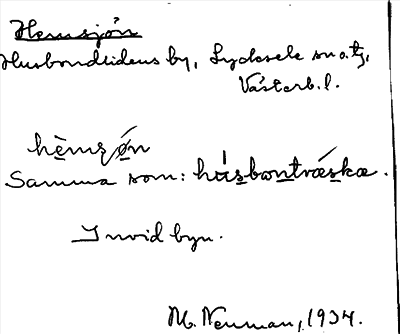 Hemsjön
Husbondlidens by, Lycksele sn o. tg,
Västerb. l.
hèmsǿn
Samma som: hùsbontræ̀skæ.
Invid byn.
M. Neuman, 1934.